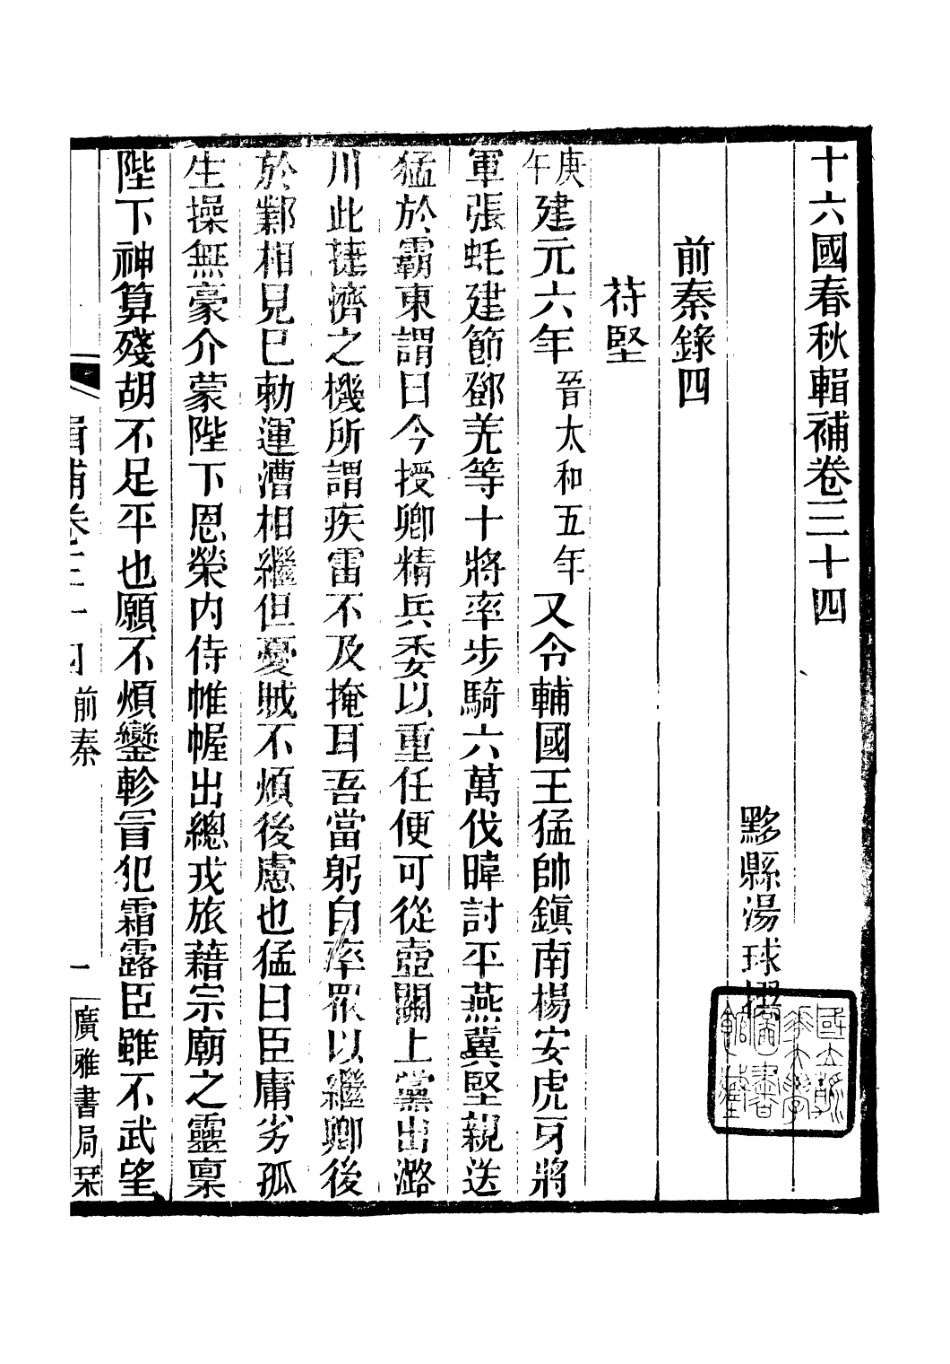 十六國春秋輯補卷三十四
黟縣湯球撰
前秦錄四
苻堅
庚午建元六年晉太和五年又令輔國王猛帥鎮南楊安虎牙將
軍張蚝建節鄧羌等十將率步騎六萬伐暐討平燕冀堅親送
猛於霸東謂曰今授卿精兵委以重任便可從壺關上黨出潞
川此捷濟之機所謂疾雷不及掩耳吾當躬自率眾以繼卿後
於鄴相見巳勅運漕相繼但憂賊不煩後慮也猛曰臣庸劣孤
生操無豪介蒙陛下恩榮內侍帷幄出總戎旅藉宗廟之靈稟
陛下神算殘胡不足平也願不煩鑾軫冒犯霜露臣雖不武望
輯補卷三十四 前秦
一
廣雅書局栞
國立
大學
圖書
館藏